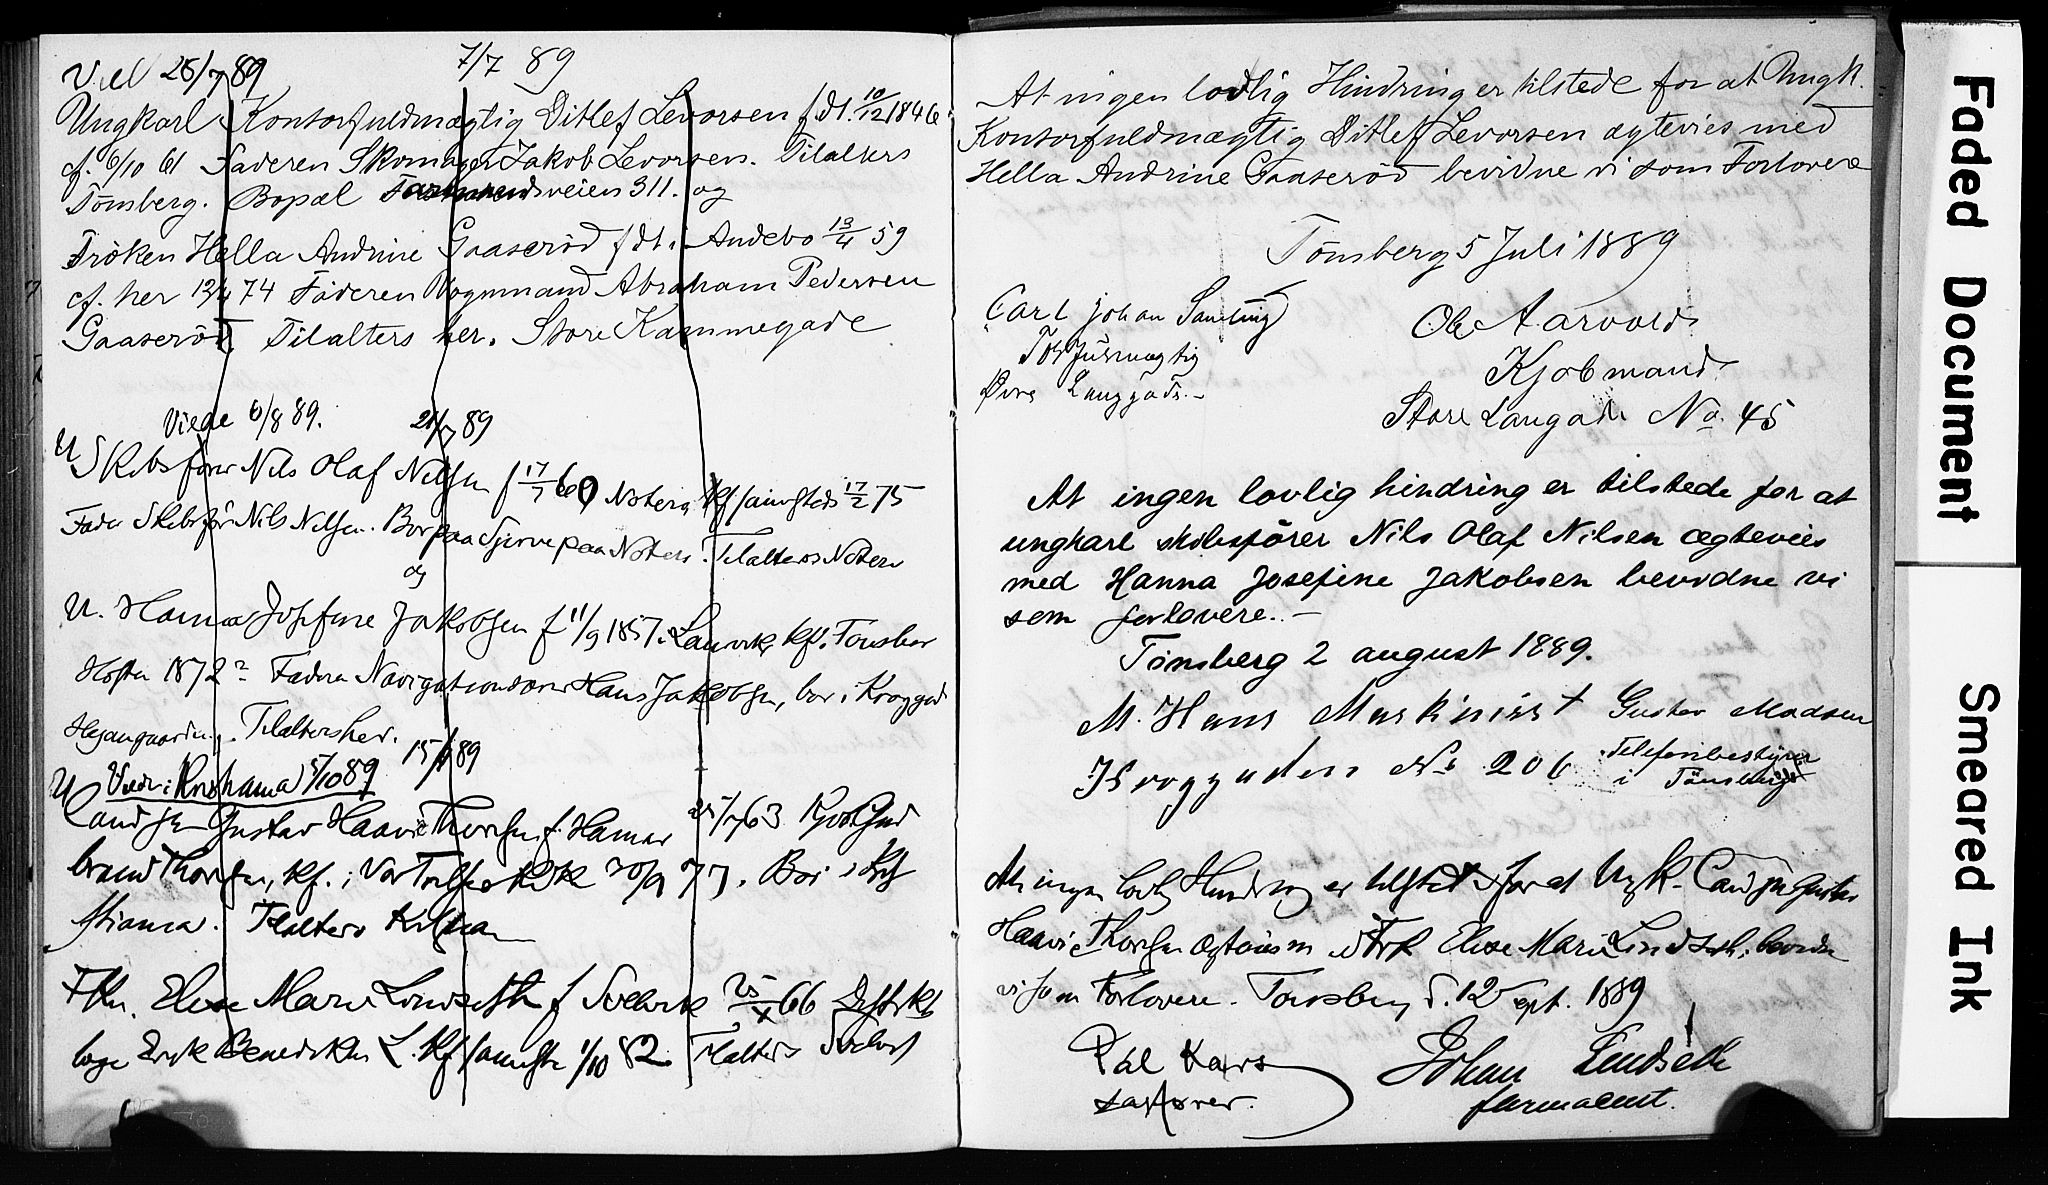 Viel 26/7 89 7/7 89
Ungkarl Kontorfuldmægtig Ditlef Levorsen fdt. 10/12 1846
cf. 6/10 61 Faderen Skomager Jakob Levorsen. Tilalters
Tønsberg. Bopæl Farmandsveien 311. og
Frøken Hella Andrine Gaaserød fdt i Andebo 13/4 59
cf. her 12/4 74 Faderen Vognmand Abraham Pedersen
Gaaserød Tilalters her. Store Kammegade
Viede 6/8 89. 21/7 89
U Skibsfører Nils Olaf Nilsen f 17/7 60 Noterø Kf samsteds 17/2 75
Fader Skibsfør Nils Nilsen. Bor paa paa Noterø. Tilalters Noterø
og
U. Hanna Josefine Jakobsen f 11/9 1857 i Laurvik, Kf. Tønsber
Høsten 1872? Faderen Hans Jakobsen, bor i Kroggad
Tilalters her.
15/9 89
U Viede i Kristiania 5/10 89
Cand jur Gustav Haavie Thoresen f. Hamar 25/7 63
brand Thoresen, Kf. i Vor Frelsers Kirke 30/9 77. Bor i Kri
stiania. Tilalters
Frkn. Elise Marie Lindseth f Svelvik 25/X 66
læge L. Kf samste 1/10 82 Tilalters Svelvik
At ingen lovlig Hindring er tilstede for at Ungk.
Kontorfuldmægtig Ditlef Levorsen ægtevies med
Hella Andrine Gaaserød bevidne vi som Forlovere
Tønsberg 5 Juli 1889
Carl Johan Ole Aarvold
Kjøbmand
Øvre Langgade. Store Langade No. 45
At ingen lovlig hindring er tilstede for at
ungkarl skibsfører Nils Olaf Nilsen ægtevies
med Hanna Josefine Jakobsen bevidne vi
som forlovere. —
Tønsberg 2 august 1889.
M. Hans Maskinist Gustav Madsen
Kroggaden No 206 Telefonbestyrer
i Tønsberg
At ingen lovlig Hindring er tilstede for at Ungk. Cand jur Gustav
Haavie Thoresen ægtevies m Frk Elise Marie Lindseth, bevidne
vi som Forlovere. Tønsberg d. 12 Sept. 1889
Johan Lindseth
farmaceut.
Faded Document
Smeared Ink